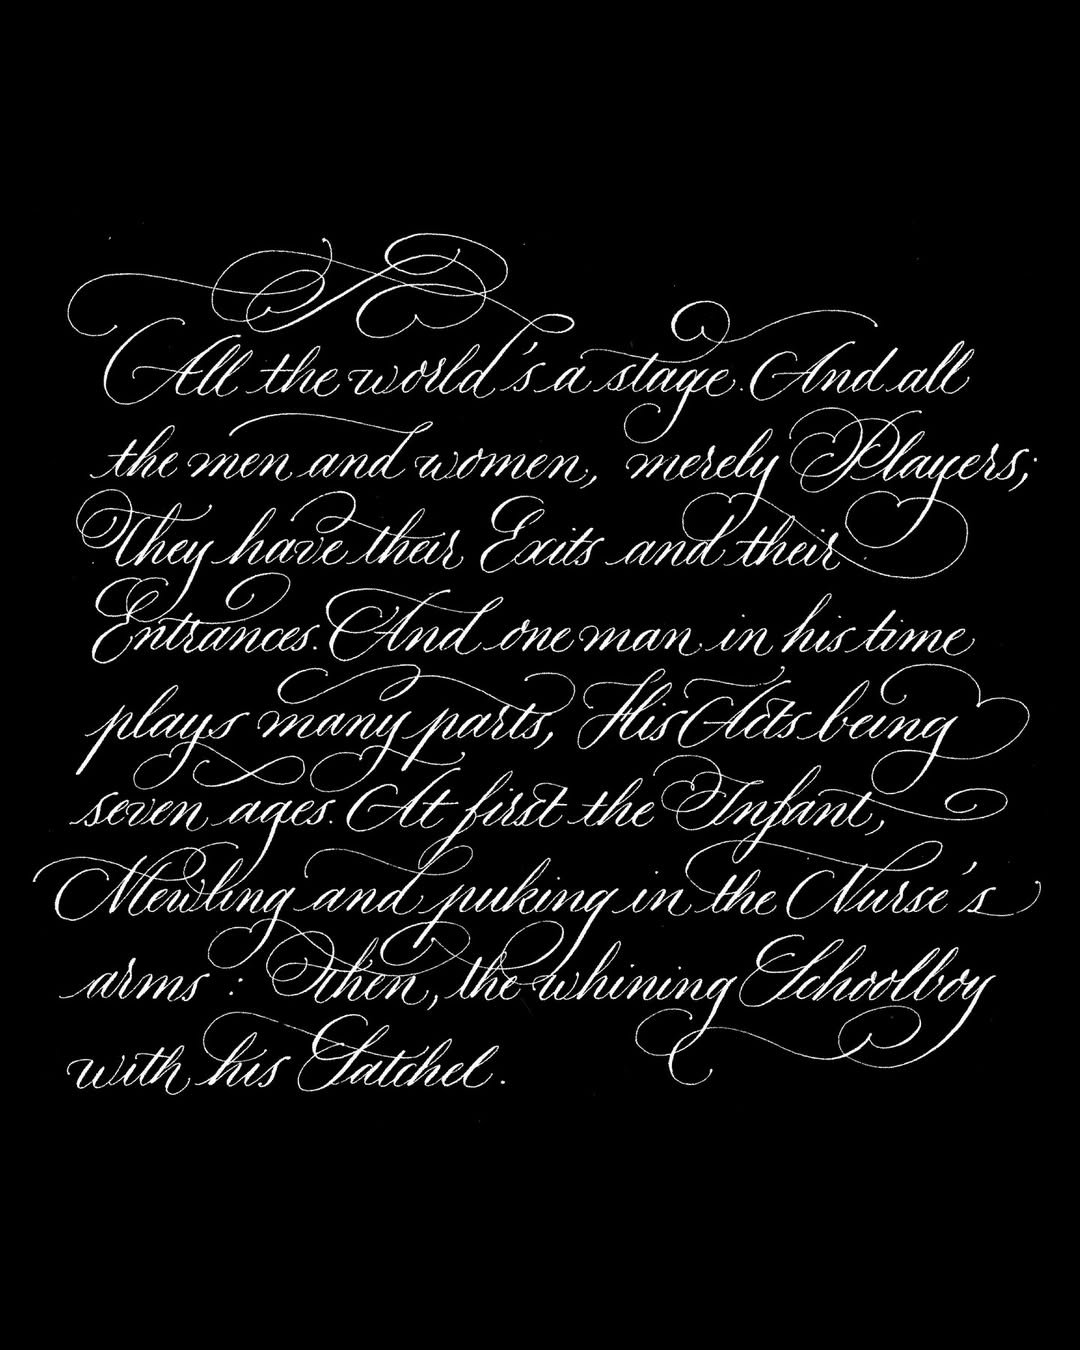 All the world's a stage. And all
the men and women, merely Players;
They have their Exits and their
Entrances. And one man in his time
plays many parts, His Acts being
seven ages. At first the Infant,
Mewling and puking in the Nurse's
arms : Then, the whining Schoolboy
with his Satchel.